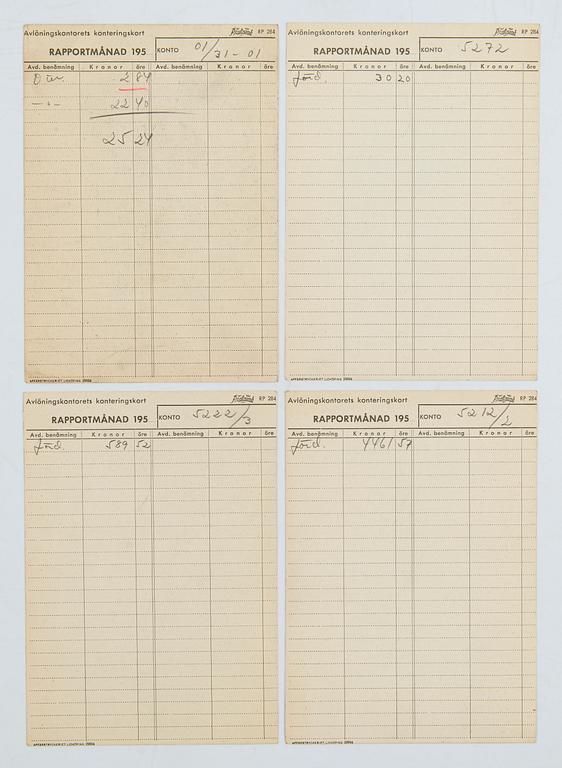 Avlöningskontorets konteringskort RP 284
RAPPORTMÅNAD 195 KONTO 01/31-01
Avd. benämning Kronor öre Avd. benämning Kronor öre
2 84
-"- 22 40
25 24
Avlöningskontorets konteringskort RP 284
RAPPORTMÅNAD 195 KONTO 5272
Avd. benämning Kronor öre Avd. benämning Kronor öre
förd. 30 20
Avlöningskontorets konteringskort RP 284
RAPPORTMÅNAD 195 KONTO 5222/3
Avd. benämning Kronor öre Avd. benämning Kronor öre
förd. 589 52
Avlöningskontorets konteringskort RP 284
RAPPORTMÅNAD 195 KONTO 5212/2
Avd. benämning Kronor öre Avd. benämning Kronor öre
förd. 4461 57